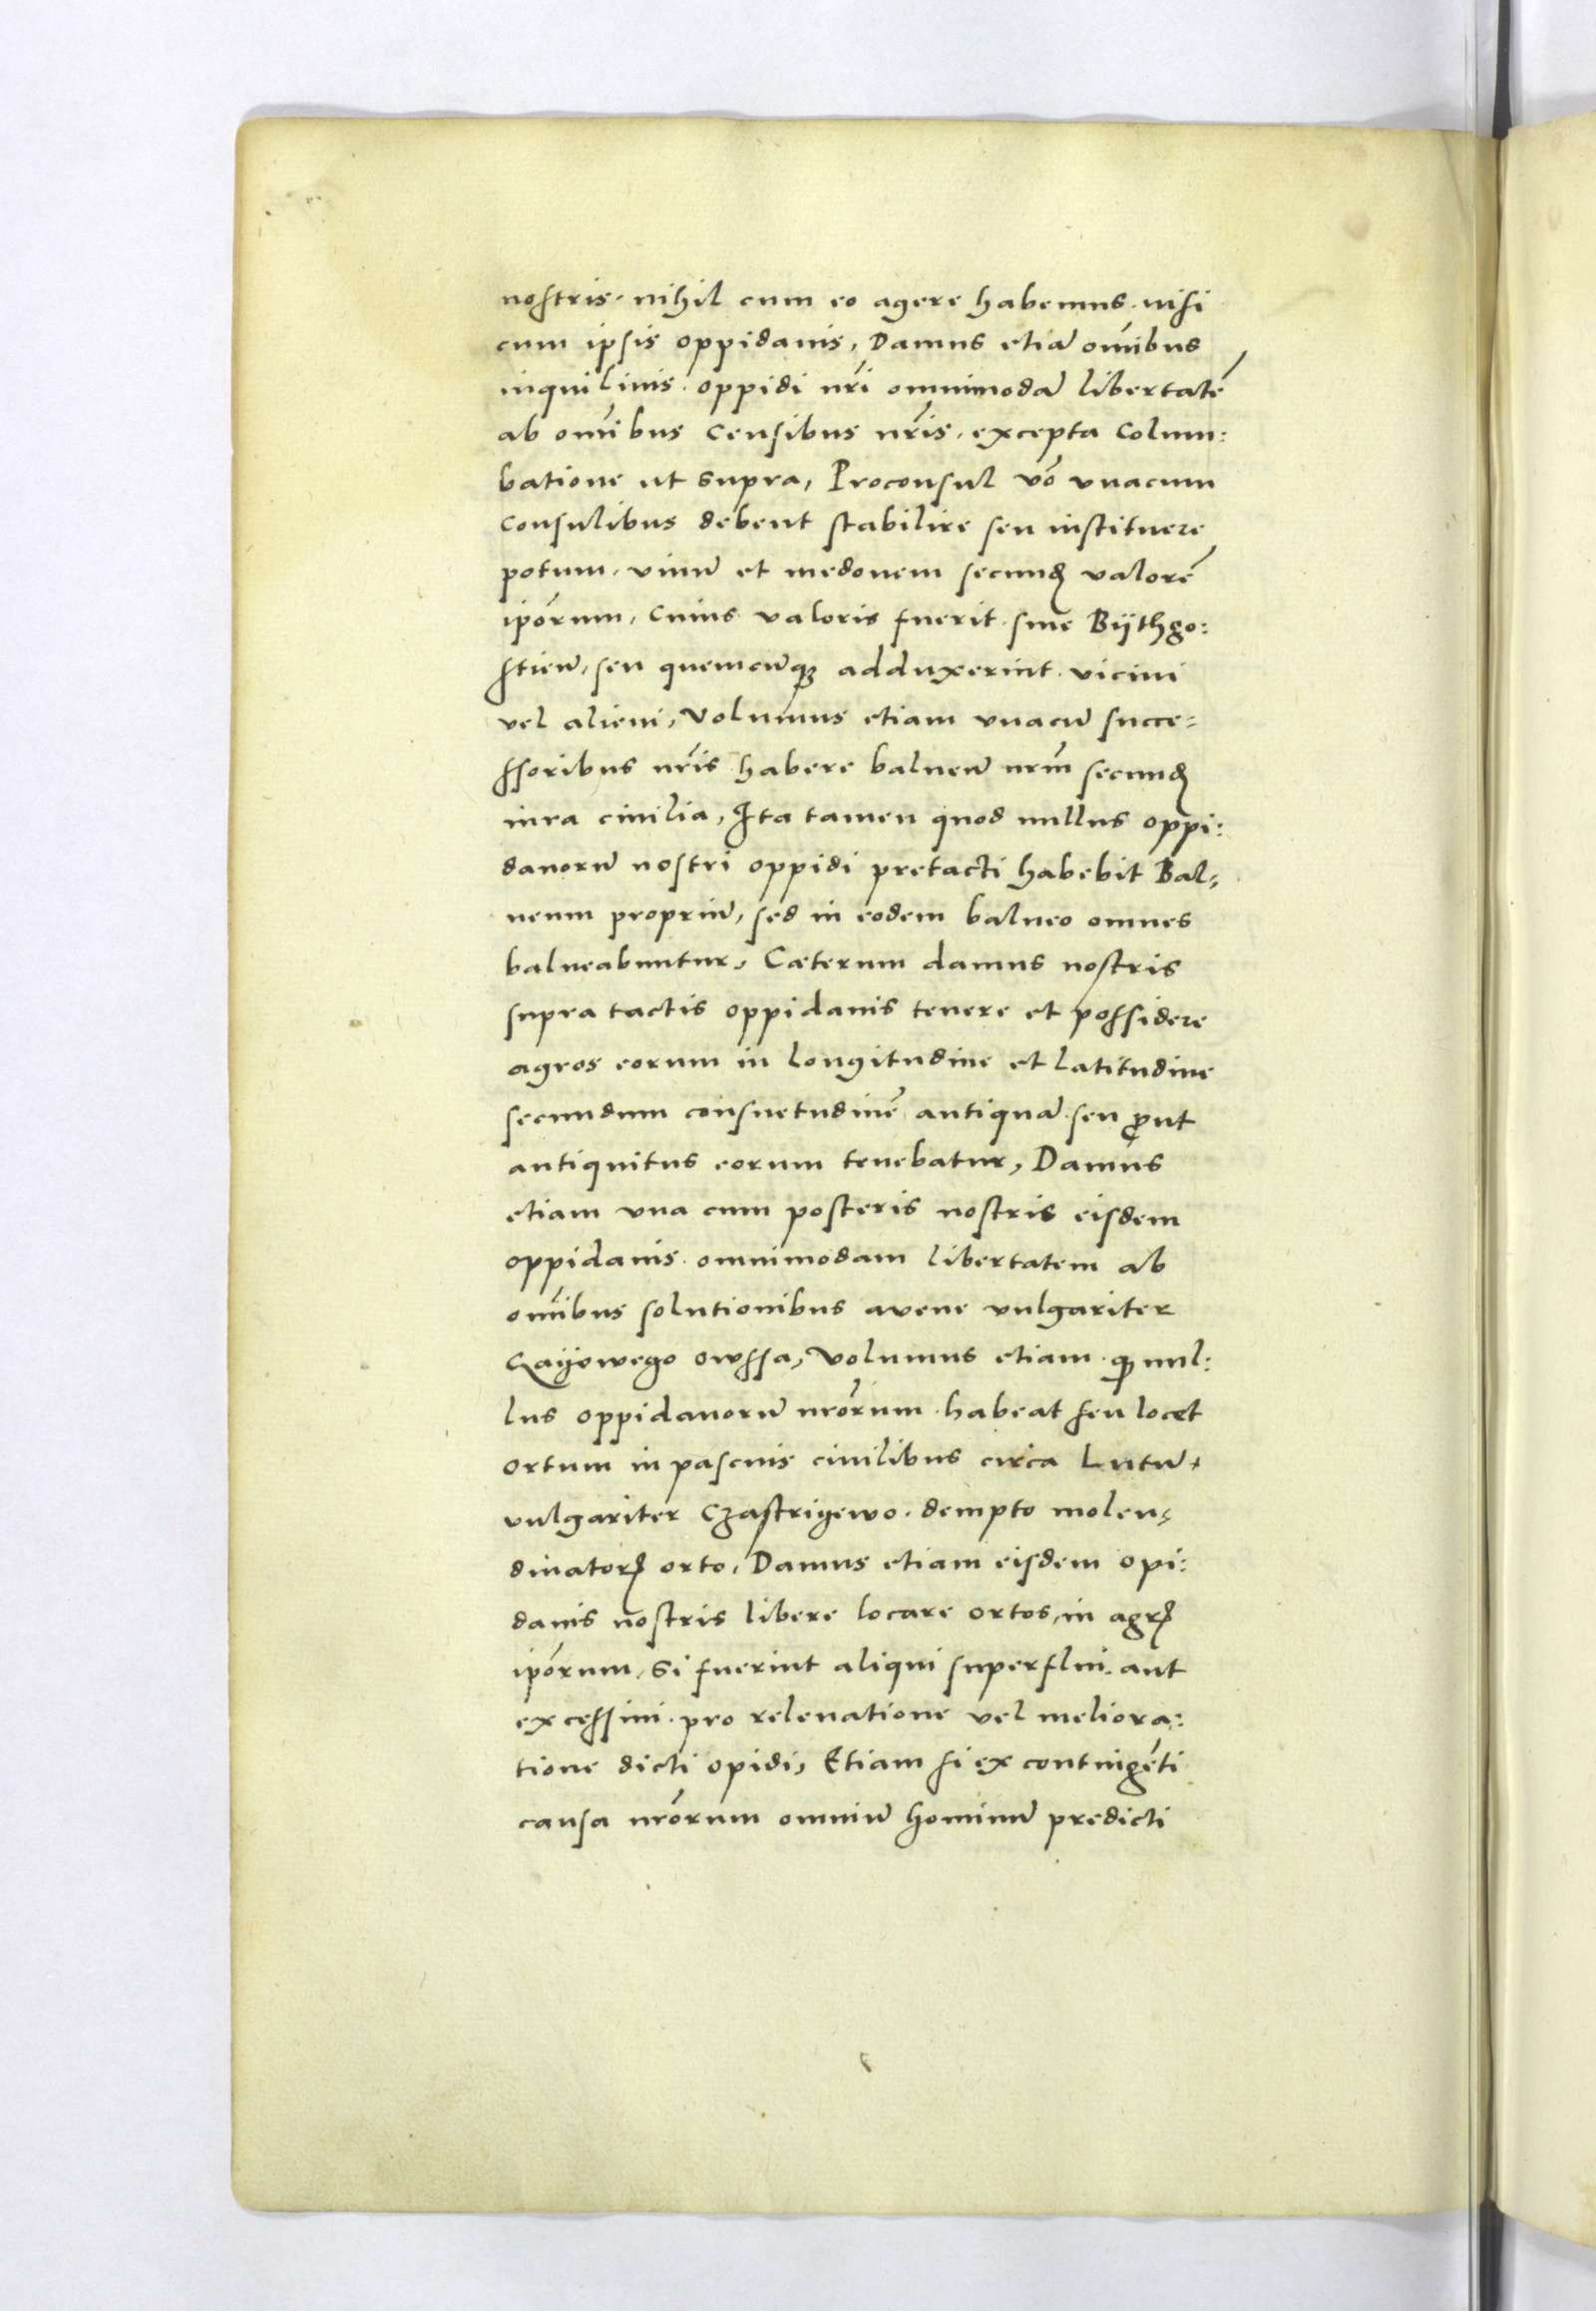 nostris. nihil cum eo agere habemus. nisi
cum ipsis oppidanis, Damus etiā om̄ibus
inquilinis. oppidi nr̄i omnimodā libertatē
ab om̄ibus censibus nr̄is. excepta Colum:
batione ut supra, Proconsul vō unacum
consulibus debent stabilire seu instituere
potum. vinū et medonem secundꝫ valorē
ipōrum, cuius valoris fuerit. siue Bÿthgo:
stien̄, seu quemcūqꝫ adduxerint. vicini
vel alieni, Volumus etiam unacū succe=
ssoribus nr̄is habere balneū nr̄m secundꝫ
iura ciuilia, Ita tamen quod nullus oppi:
danorū nostri oppidi pretacti habebit Bal=
neum propriū, sed in eodem balneo omnes
balneabuntur, Cæterum damus nostris
supra tactis oppidanis tenere et possidere
agros eorum in longitudine et latitudine
secundum consuetudinē antiquā. seu ꝓut
antiquitus eorum tenebatur, Damus
etiam una cum posteris nostris eisdem
oppidanis. omnimodam libertatem ab
om̄ibus solutionibus avene vulgariter
Czayowego owssa, Volumus etiam. qꝫ nul:
lus oppidanorū nrōrum. habeat seu locet
ortum in pascuis ciuilibus circa Lutū
vulgariter Czastrigewo. dempto molen=
dinatorꝫ orto, Damus etiam eisdem opi:
danis nostris libere locare ortos, in agrꝫ
ipōrum, Si fuerint aliqui superflui. aut
excessiui. pro releuatione vel meliora:
tione dicti opidi, Etiam si ex contingēti
causa nrōrum omniū hominū predicti